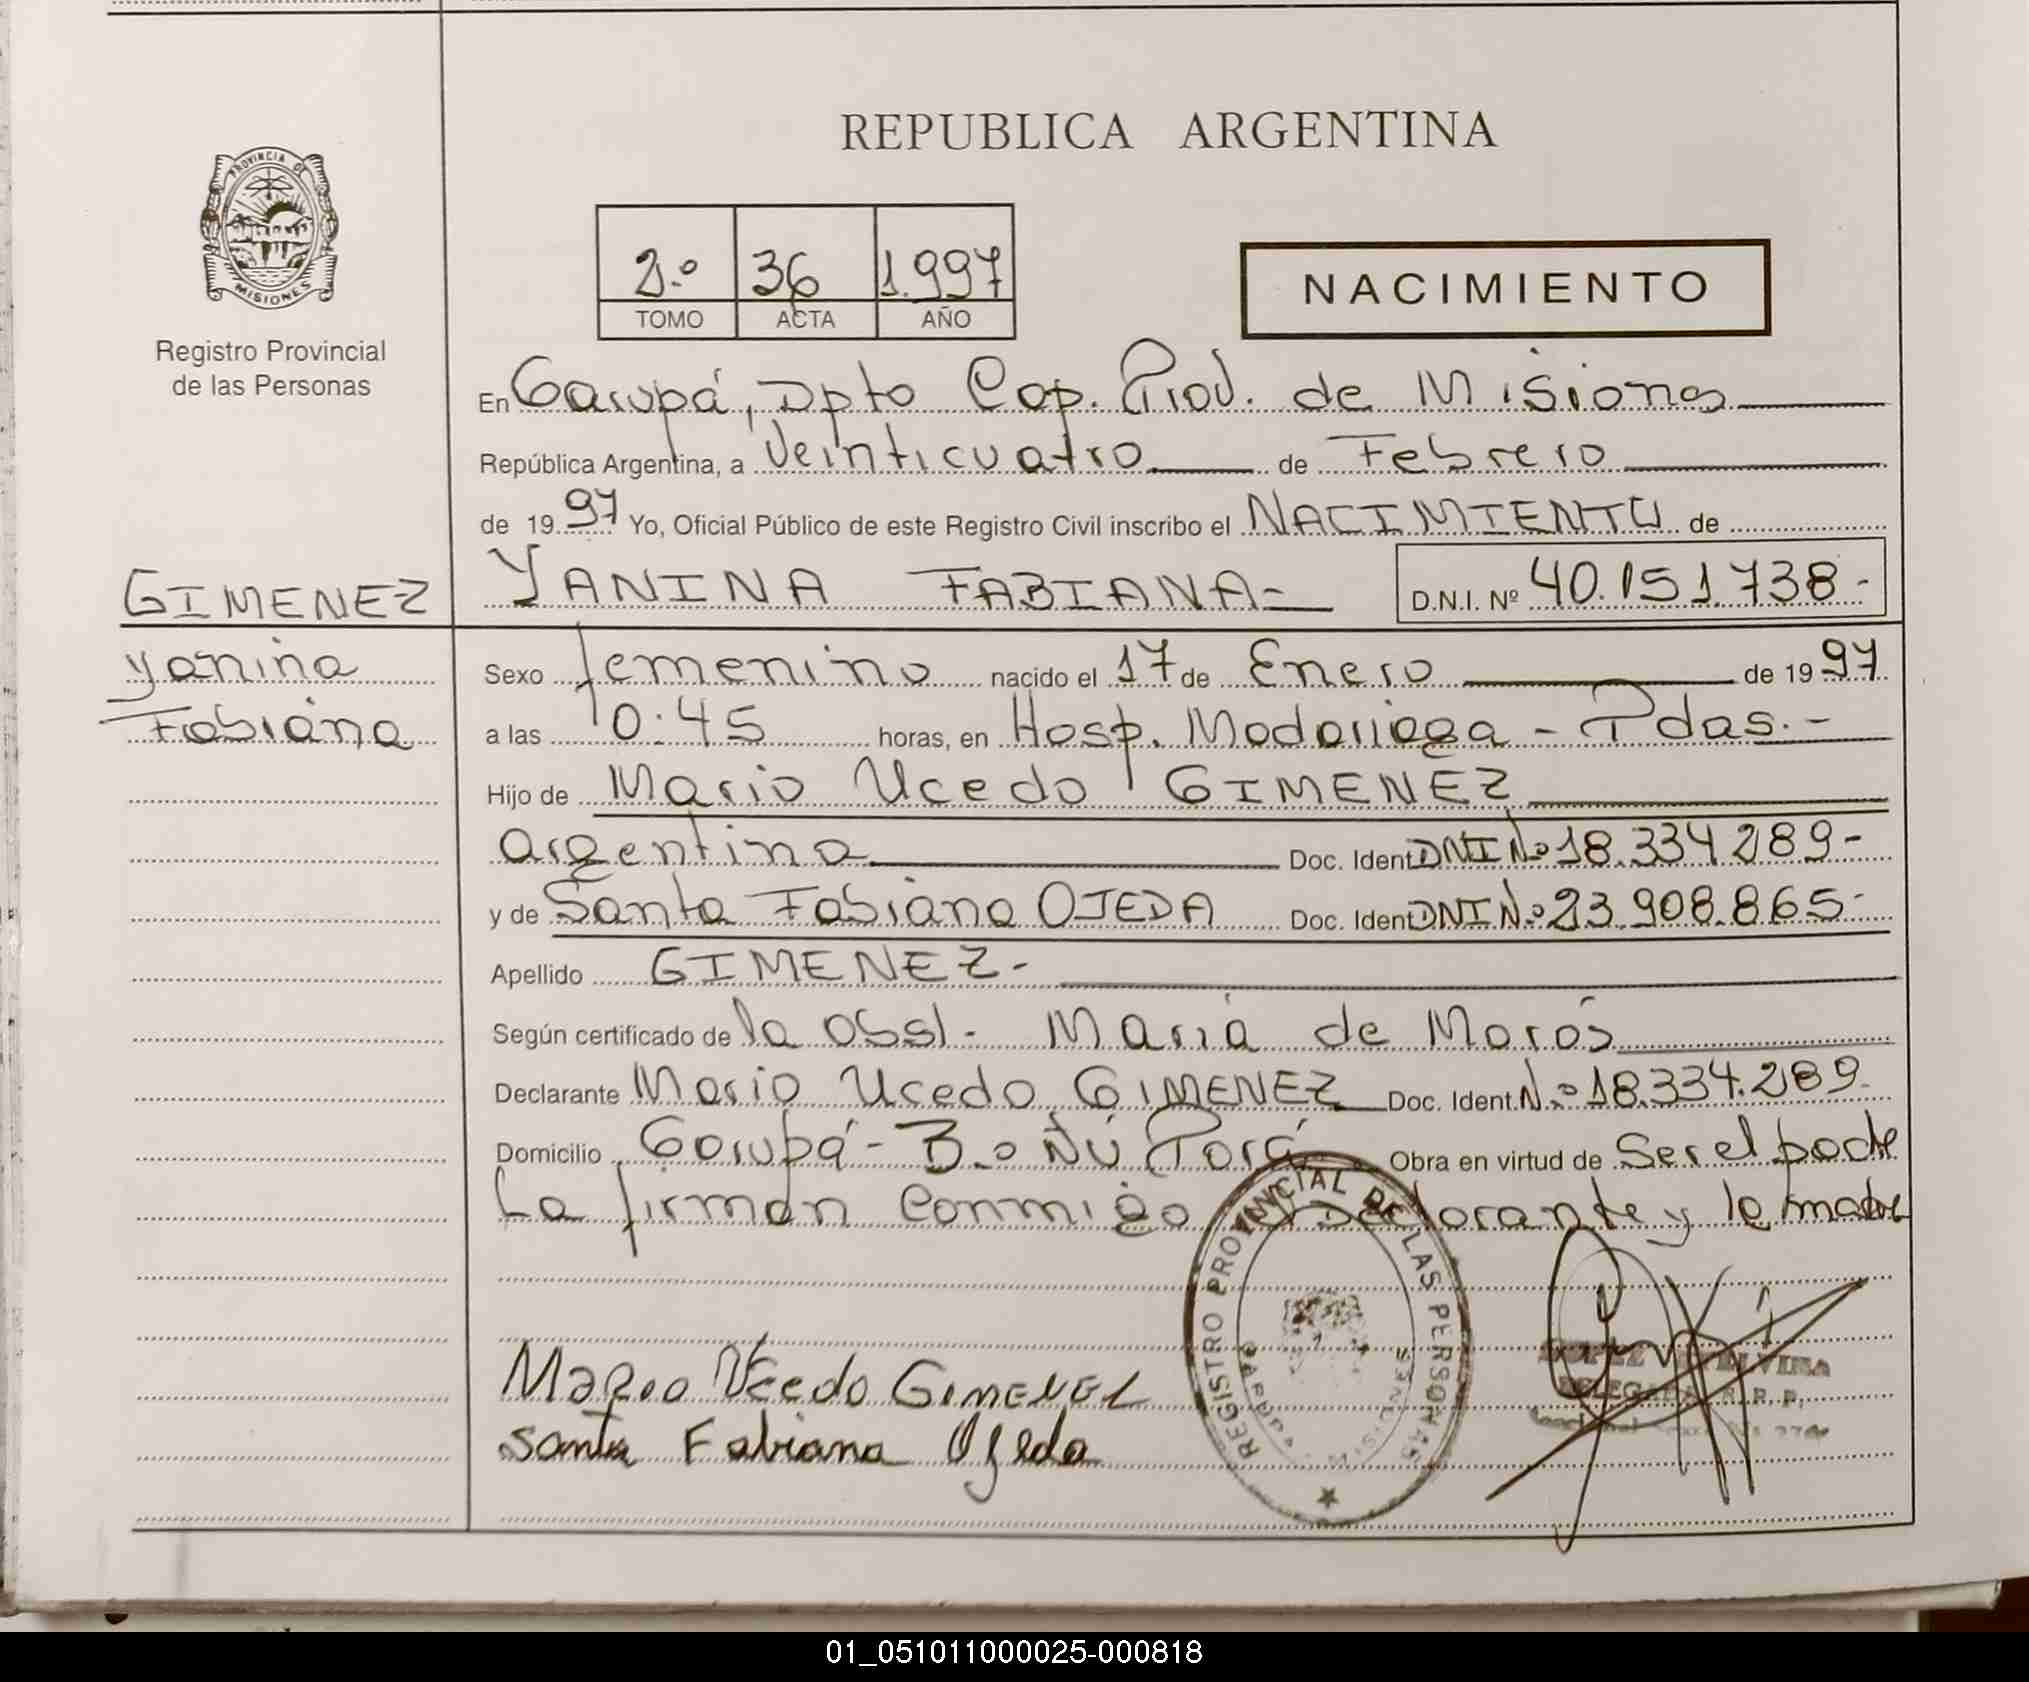 REPUBLICA ARGENTINA
PROVINCIA DE
MISIONES
Registro Provincial
de las Personas
2.º 36 1.997
TOMO ACTA AÑO
NACIMIENTO
En Garupá, Dpto Cap. Prov. de Misiones
República Argentina, a Veinticuatro de Febrero
de 1997 Yo, Oficial Público de este Registro Civil inscribo el NACIMIENTO de
GIMENEZ
Yanina
Fabiana
YANINA FABIANA- D.N.I. Nº 40.151.738-
Sexo femenino nacido el 17 de Enero de 1997
a las 10:45 horas, en Hosp. Madariaga - Pdas.-
Hijo de Mario Ucedo GIMENEZ
argentino Doc. Ident DNI N.º 18.334.289-
y de Santa Fabiana OJEDA Doc. Ident DNI N.º 23.908.865-
Apellido GIMENEZ-
Según certificado de la obst. Maria de Moros
Declarante Mario Ucedo GIMENEZ Doc. Ident N.º 18.334.289
Domicilio Garupá - B.º Ñu Porá Obra en virtud de Ser el padre
La firman conmigo y la madre
Mario Ucedo GIMENEZ
Santa Fabiana Ojeda
REGISTRO PROVINCIAL DE LAS PERSONAS
GARUPA - MISIONES
DELEGADA R. R. P.
01_051011000025-000818